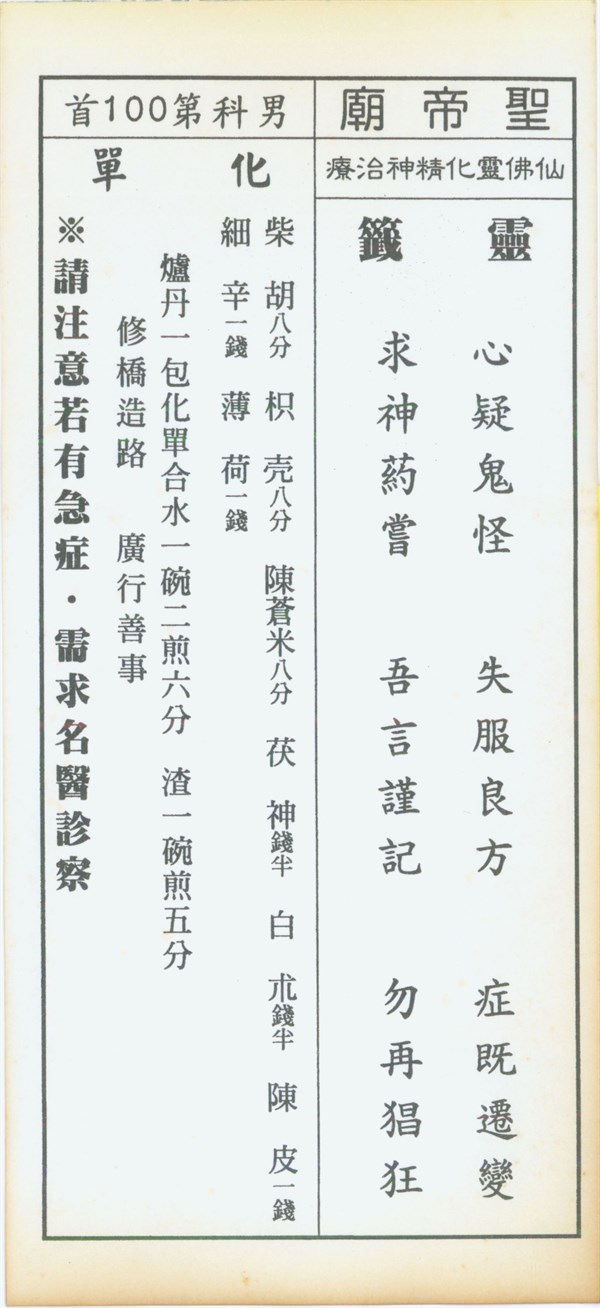 聖帝廟
仙佛靈化精神治療
靈籤
心疑鬼怪　失服良方　症既遷變
求神葯嘗　吾言謹記　勿再猖狂
男科第100首
化單
柴胡八分　枳壳八分　陳蒼米八分　茯神錢半　白朮錢半　陳皮一錢
細辛一錢　薄荷一錢
爐丹一包化單合水一碗二煎六分　渣一碗煎五分
修橋造路　廣行善事
※請注意若有急症・需求名醫診察